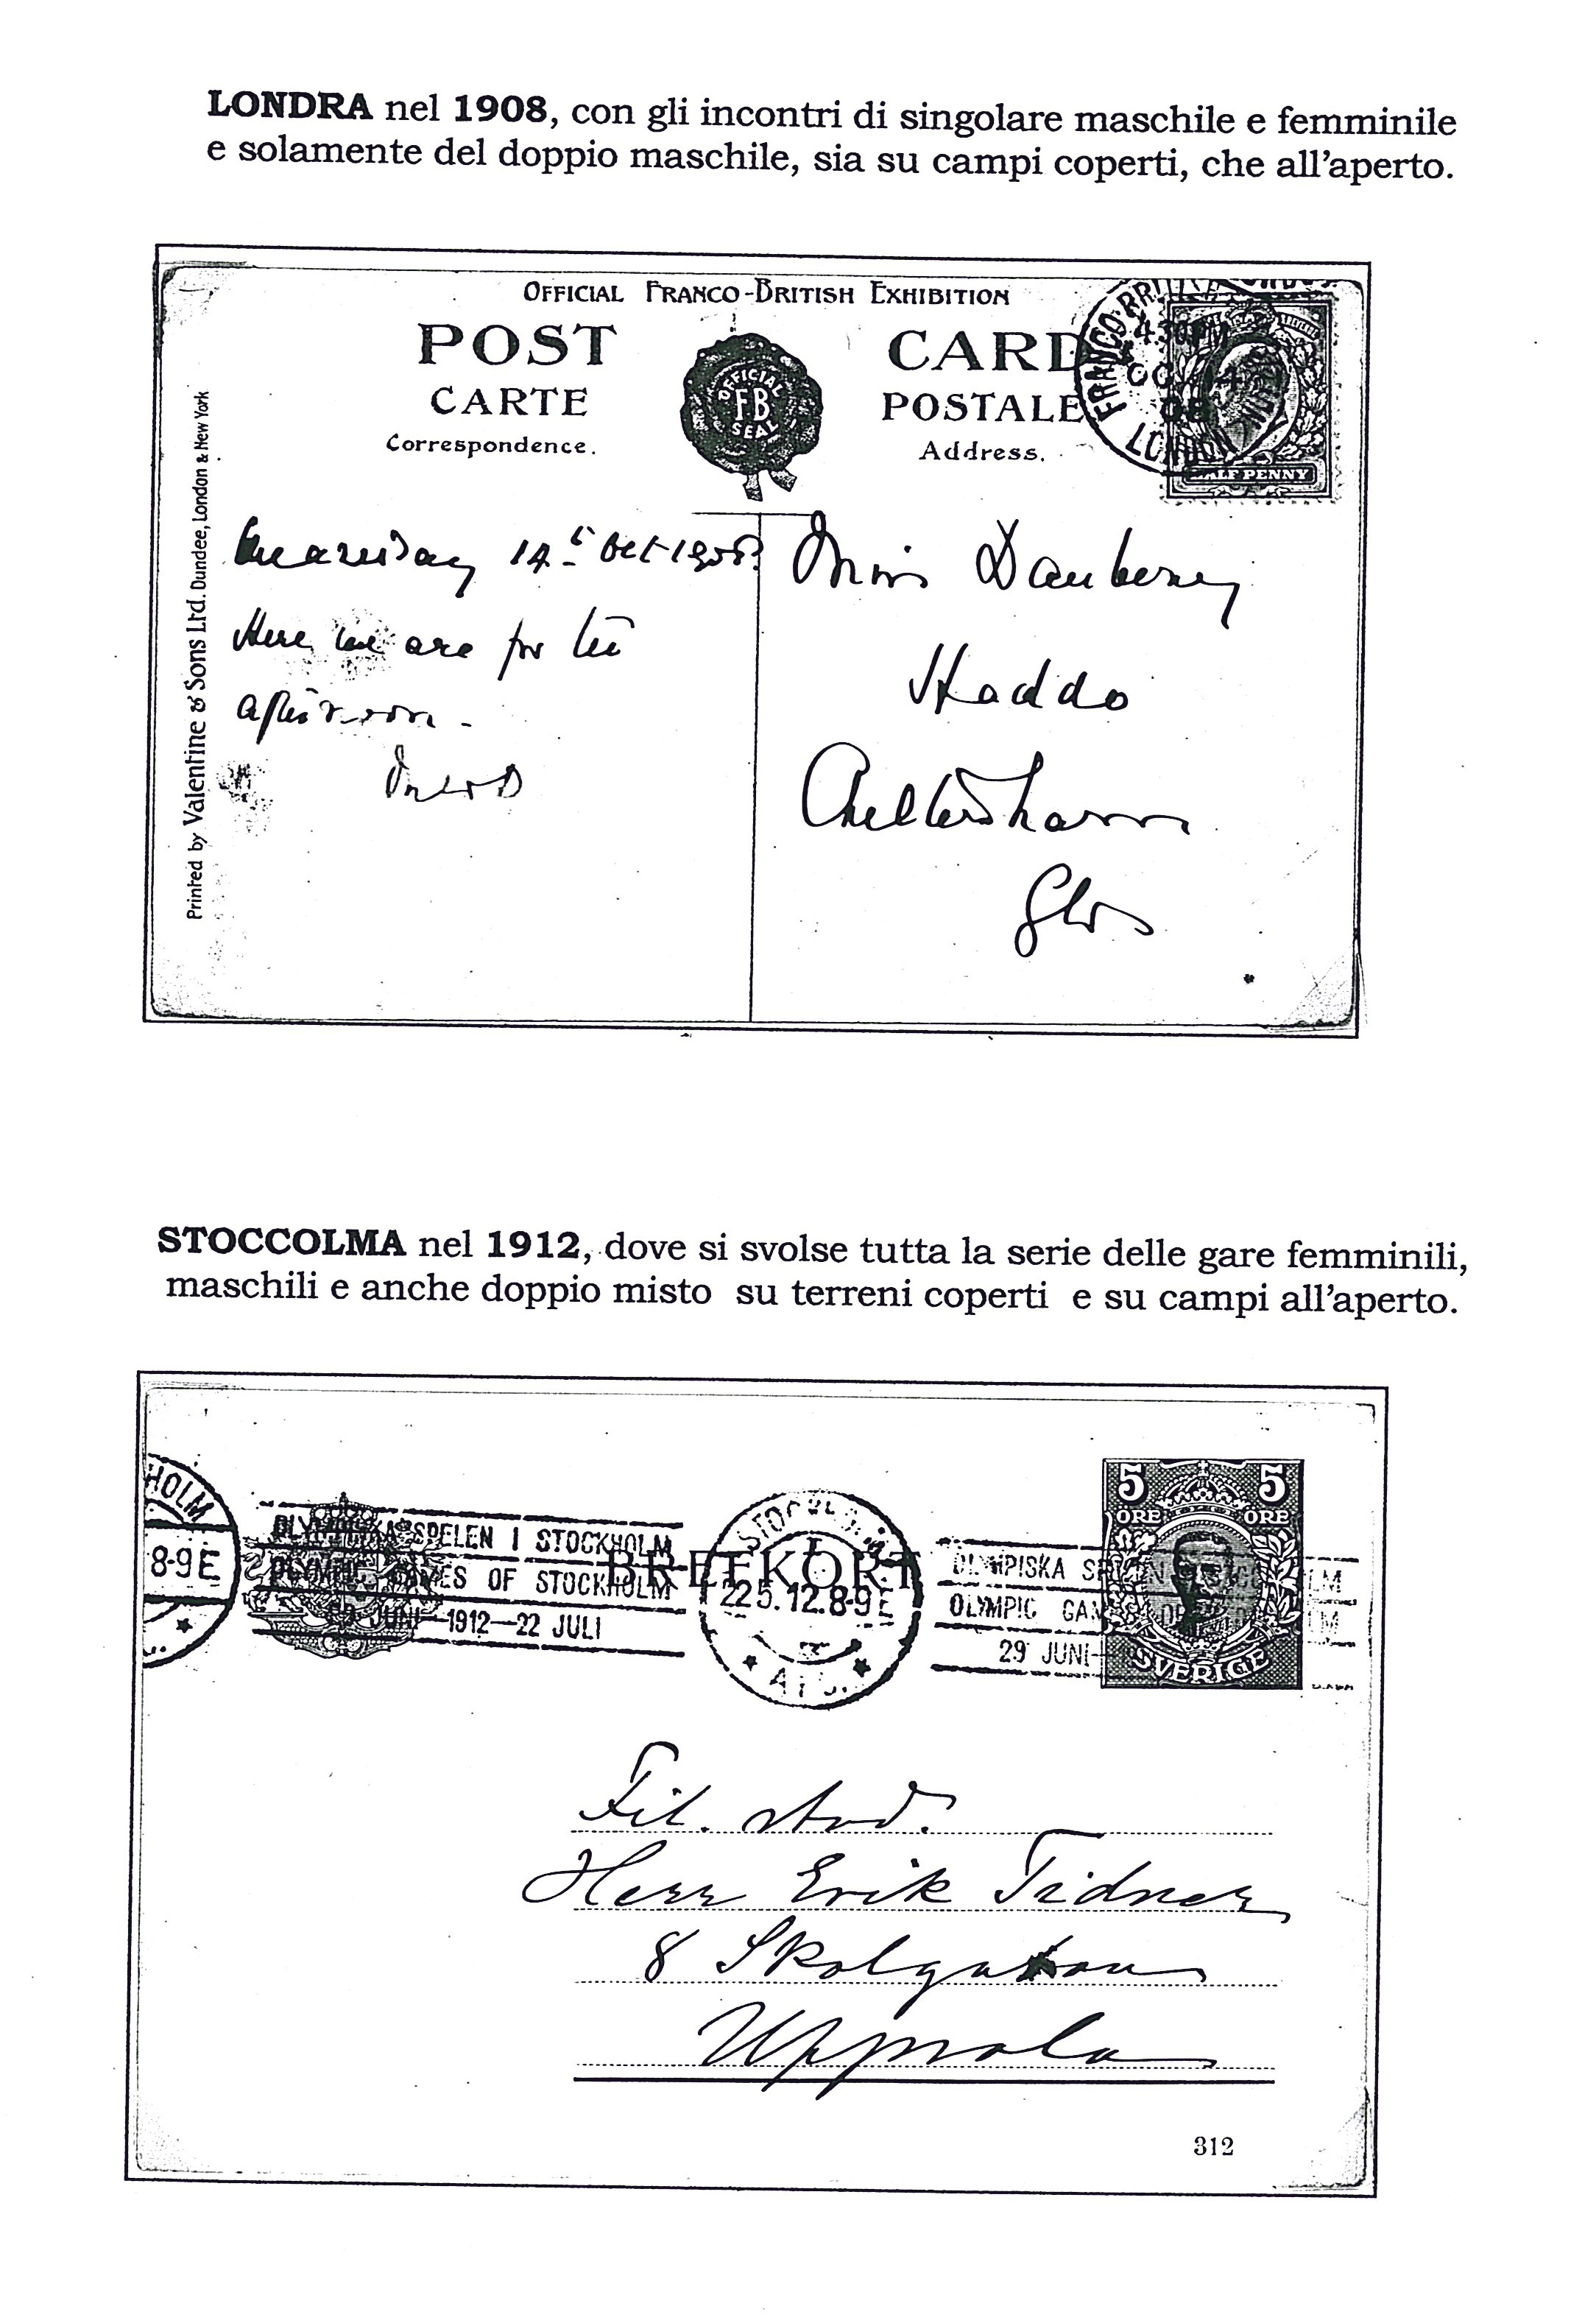 LONDRA nel 1908, con gli incontri di singolare maschile e femminile
e solamente del doppio maschile, sia su campi coperti, che all'aperto.
OFFICIAL FRANCO-BRITISH EXHIBITION
POST CARD
CARTE POSTALE
Correspondence. Address.
OFFICIAL
FB
SEAL
FRANCO-BRITISH
430PM
OC 14
08
LONDON
HALF PENNY
Printed by Valentine & Sons Ltd. Dundee, London & New York
14th Oct 1908
Here we are for the
afternoon -
Miss Daubeney
Haddo
Cheltenham
Glos
STOCCOLMA nel 1912, dove si svolse tutta la serie delle gare femminili,
maschili e anche doppio misto su terreni coperti e su campi all'aperto.
HOLM
8-9E
OLYMPISKA SPELEN I STOCKHOLM
OLYMPIC GAMES OF STOCKHOLM
JUNI-1912-22 JULI
BREFKORT
STOCKHOLM
22 5.12.8-9E
OLYMPISKA SPELEN
OLYMPIC GAMES
29 JUNI-
5 5
ÖRE ÖRE
SVERIGE
Fil. stud.
Herr Erik Tidner
8 Skolgatan
Uppsala
312